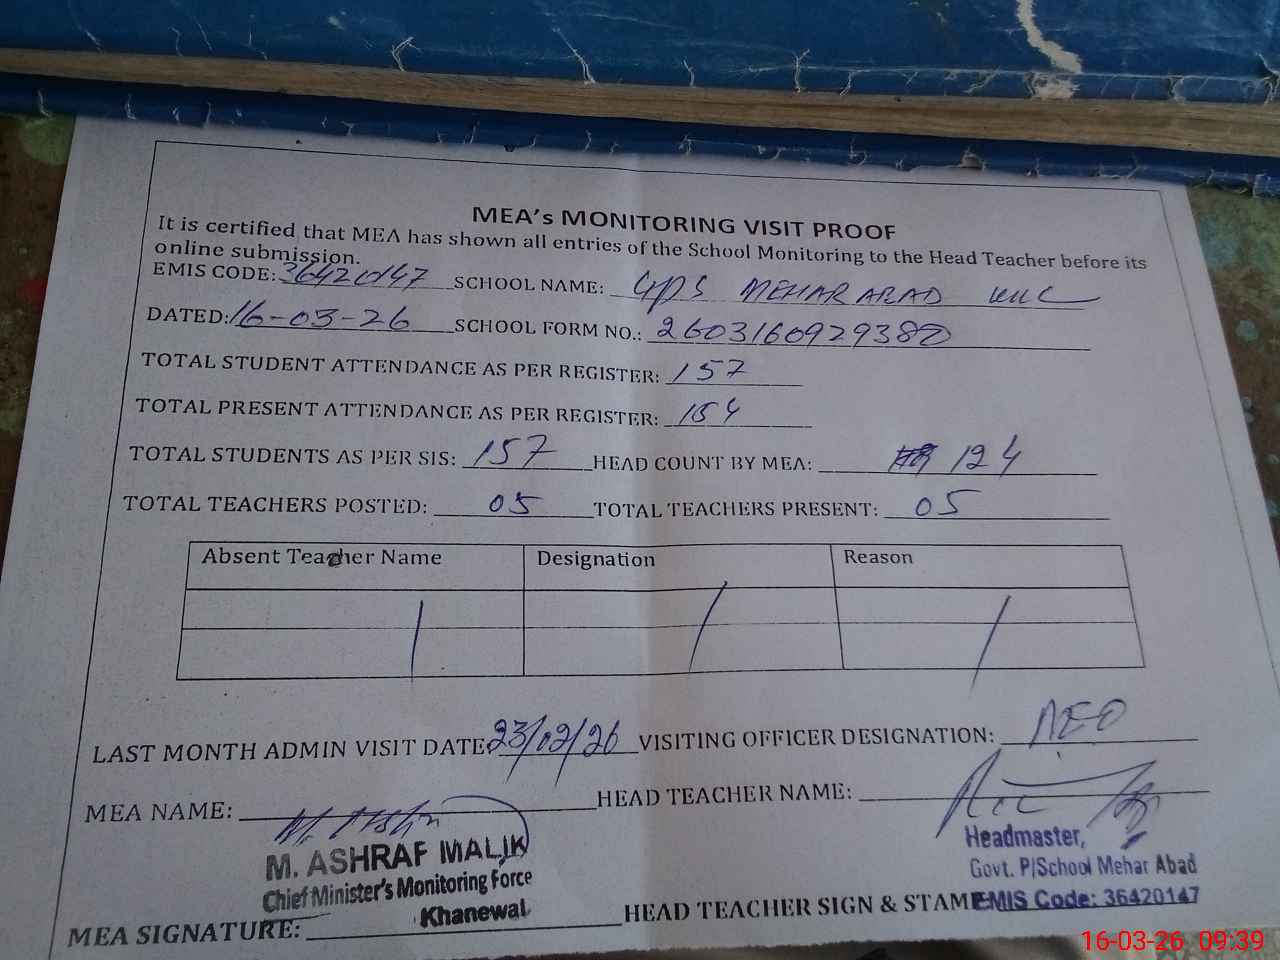 MEA's MONITORING VISIT PROOF
It is certified that MEA has shown all entries of the School Monitoring to the Head Teacher before its
online submission.
EMIS CODE: 36420147 SCHOOL NAME: GPS MEHAR ABAD KWL
DATED: 16-03-26 SCHOOL FORM NO.: 260316092938
TOTAL STUDENT ATTENDANCE AS PER REGISTER: 157
TOTAL PRESENT ATTENDANCE AS PER REGISTER: 154
TOTAL STUDENTS AS PER SIS: 157 HEAD COUNT BY MEA: 124
TOTAL TEACHERS POSTED: 05 TOTAL TEACHERS PRESENT: 05
Absent Teacher Name Designation Reason
LAST MONTH ADMIN VISIT DATE: 23/02/26 VISITING OFFICER DESIGNATION: AEO
MEA NAME: HEAD TEACHER NAME:
M. ASHRAF MALIK
Chief Minister's Monitoring Force
Khanewal
Headmaster,
Govt. P/School Mehar Abad
EMIS Code: 36420147
MEA SIGNATURE: HEAD TEACHER SIGN & STAMP
16-03-26 09:39